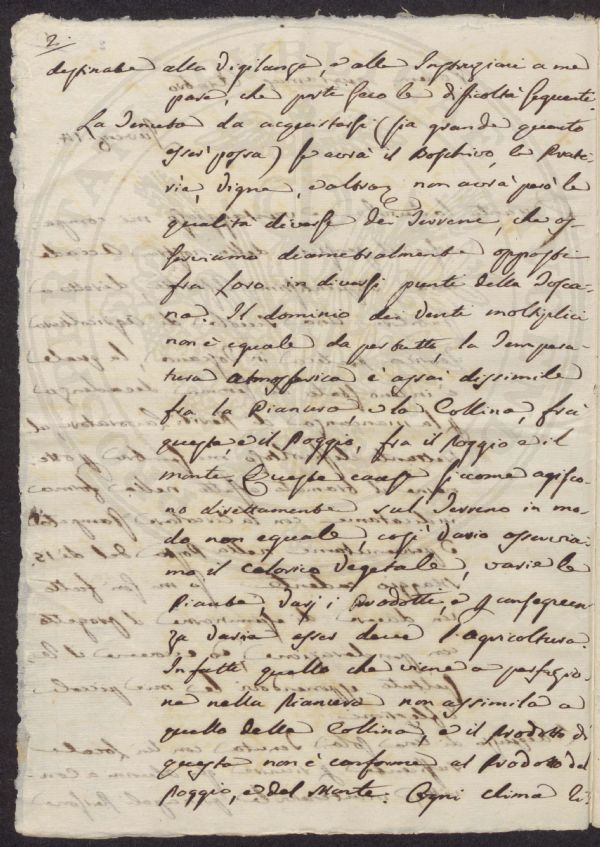 2.
destinate alla vigilanza, e alle Instruzioni a me
pare, che porti seco le difficoltà seguenti.
La Tenuta da acquistarsi (sia grande quanto
esser possa) se avrà il Boschivo, le Prate-
rie, Vigne, e altro, non avrà però le
qualità diverse dei Terreni, che os-
serviamo diametralmente opposte
fra loro in diversi punti della Tosca-
na. Il dominio dei Venti moltiplici
non è eguale da per tutto, la Tempera-
tura atmosferica è assai dissimile
fra la Pianura e la Collina, fra
questa, e il Poggio, fra il Poggio e il
monte. Queste cause siccome agisco-
no direttamente sul Terreno in mo-
do non eguale così vario osservia-
mo il calorico vegetale, varie le
Piante, varj i Prodotti, e p conseguen-
za varia esser deve l'agricoltura.
Infatti quello che viene a perfezio-
ne nella Pianura non assimila a
quello della Collina, e il Prodotto di
questa non è conforme al Prodotto del
Poggio, e del Monte. Ogni clima